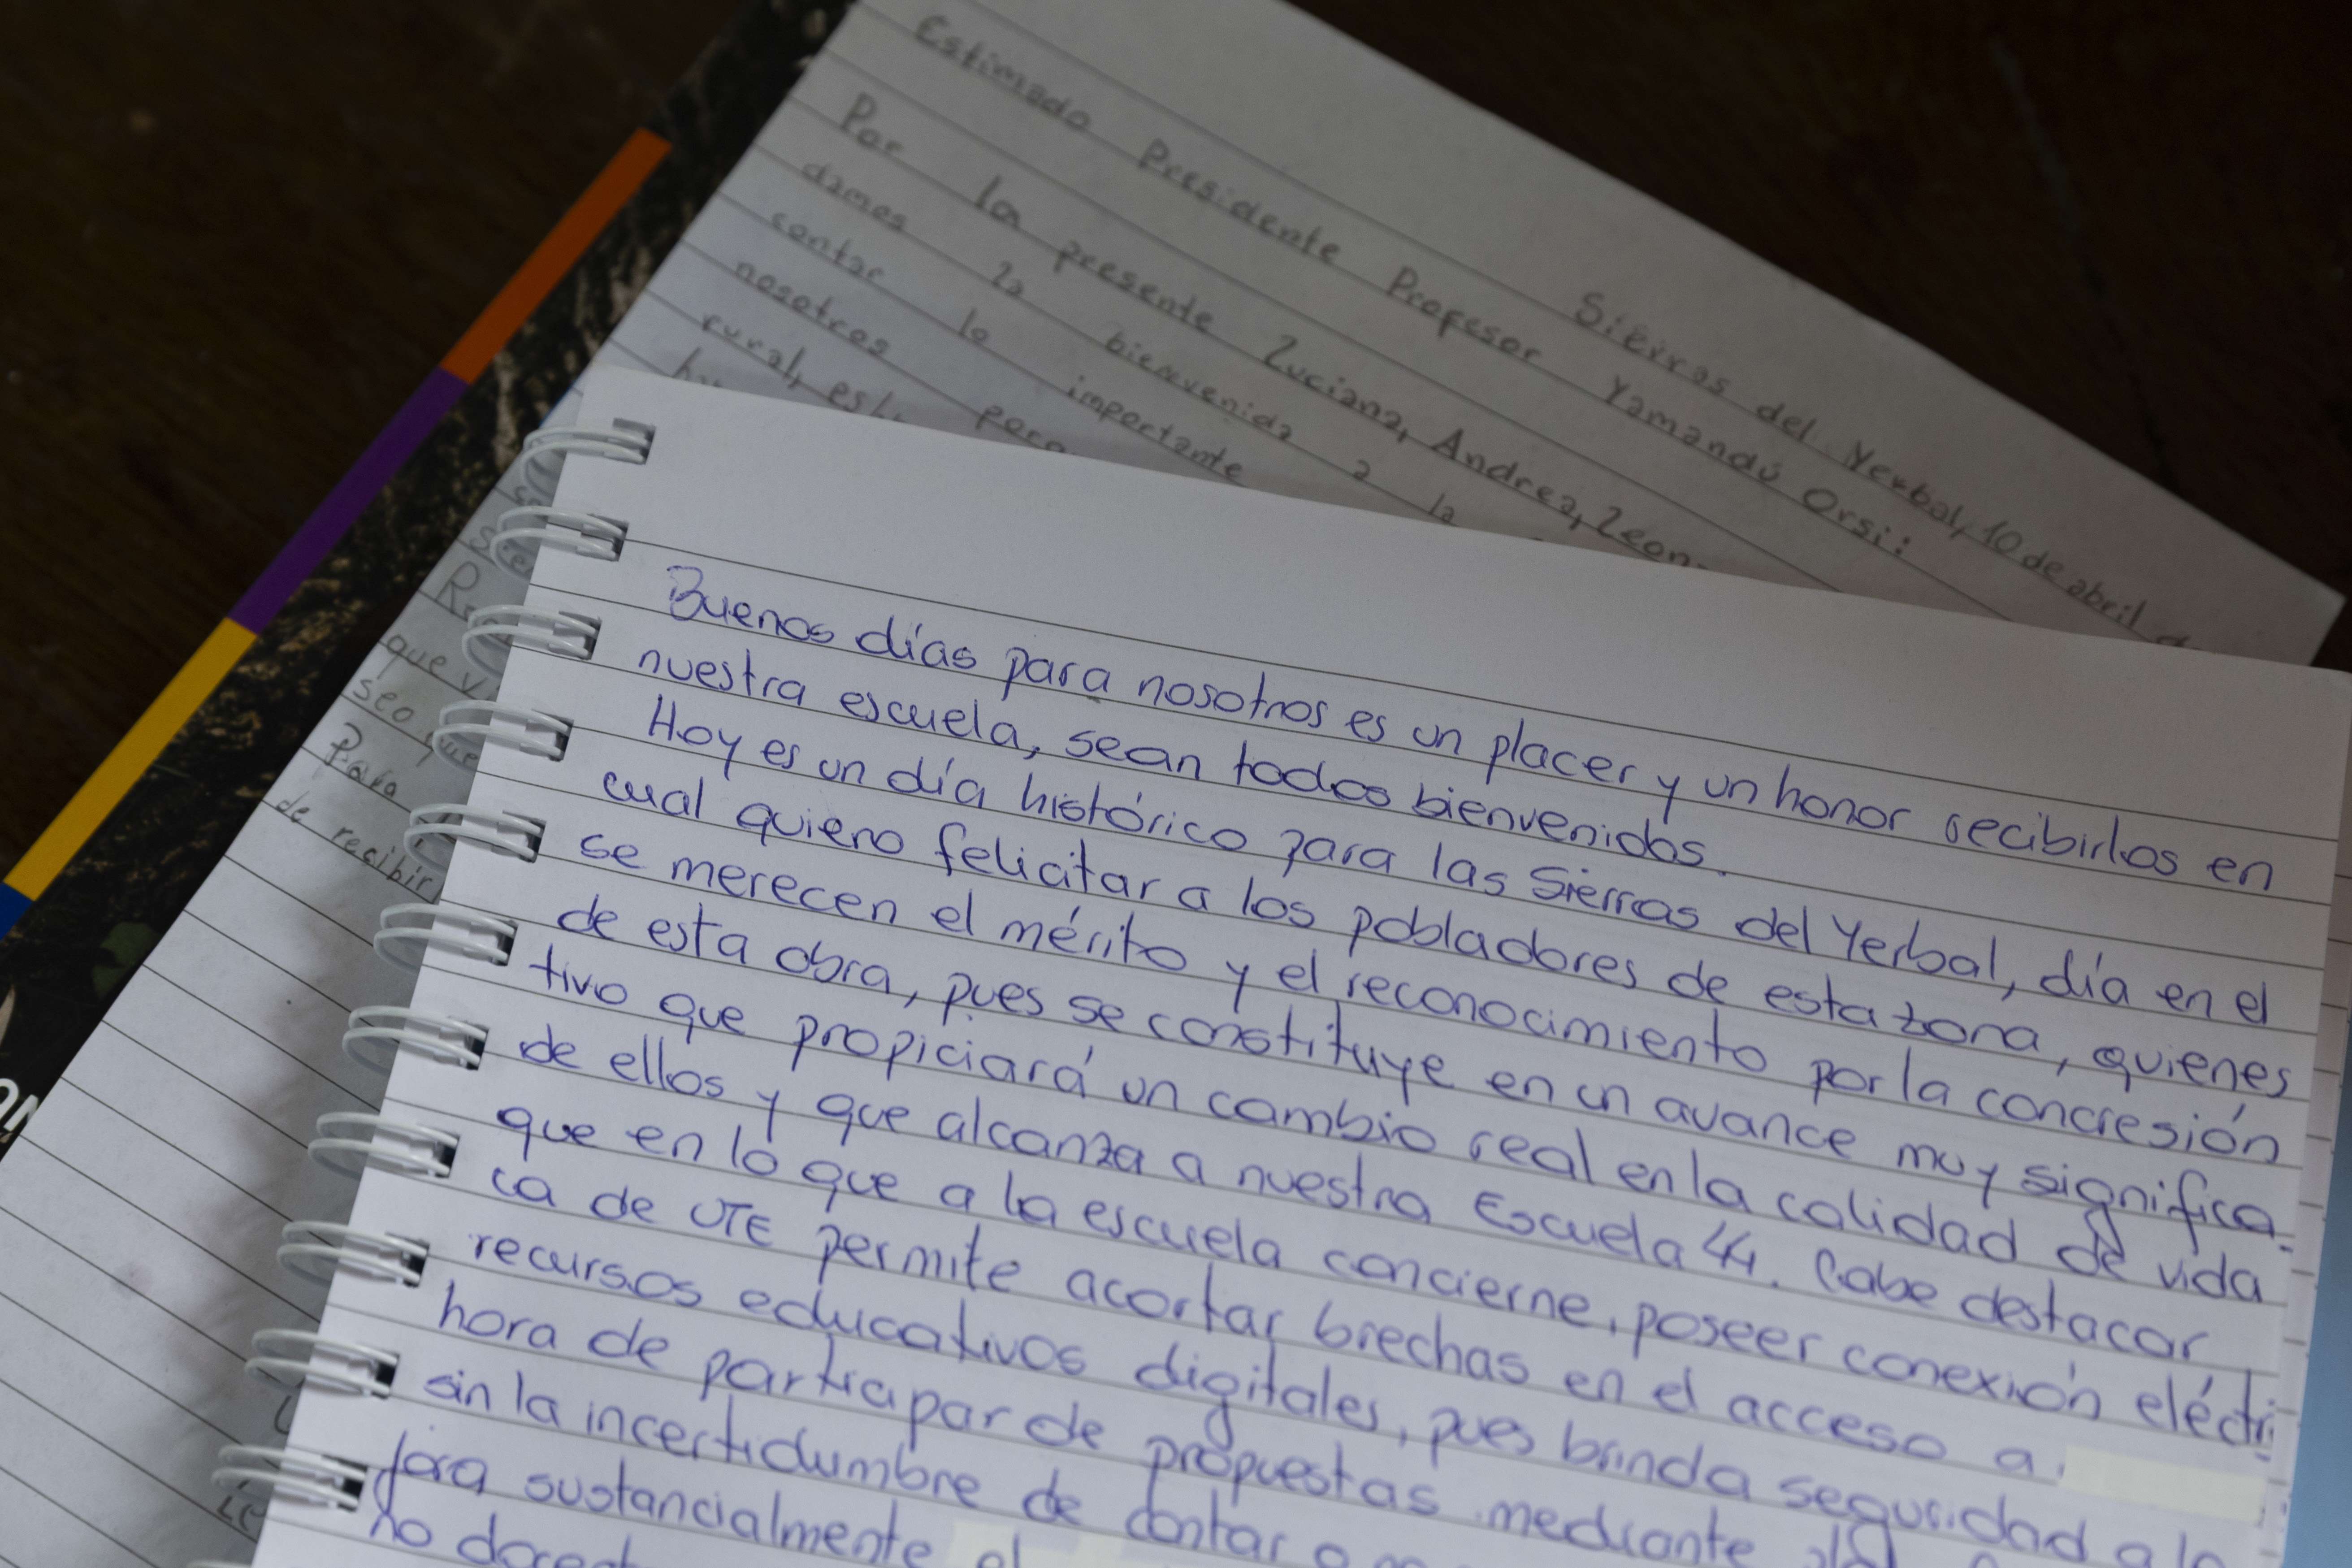 Sierras del Yerbal, 10 de abril
Estimado Presidente Profesor Yamandú Orsi:
Por la presente Luciana, Andrea,
dames la bienvenida a la
contar lo importante
nosotros para
rural,
que
seo que
Para
de recibir
Buenos días para nosotros es un placer y un honor recibirlos en
nuestra escuela, sean todos bienvenidos.
Hoy es un día histórico para las Sierras del Yerbal, día en el
cual quiero felicitar a los pobladores de esta zona, quienes
se merecen el mérito y el reconocimiento por la concresión
de esta obra, pues se constituye en un avance muy significa-
tivo que propiciará un cambio real en la calidad de vida
de ellos y que alcanza a nuestra Escuela 44. Cabe destacar
que en lo que a la escuela concierne, poseer conexión eléctri
ca de UTE permite acortar brechas en el acceso a
recursos educativos digitales, pues brinda seguridad a la
hora de participar de propuestas mediante
sin la incertidumbre de contar o
sustancialmente el
no